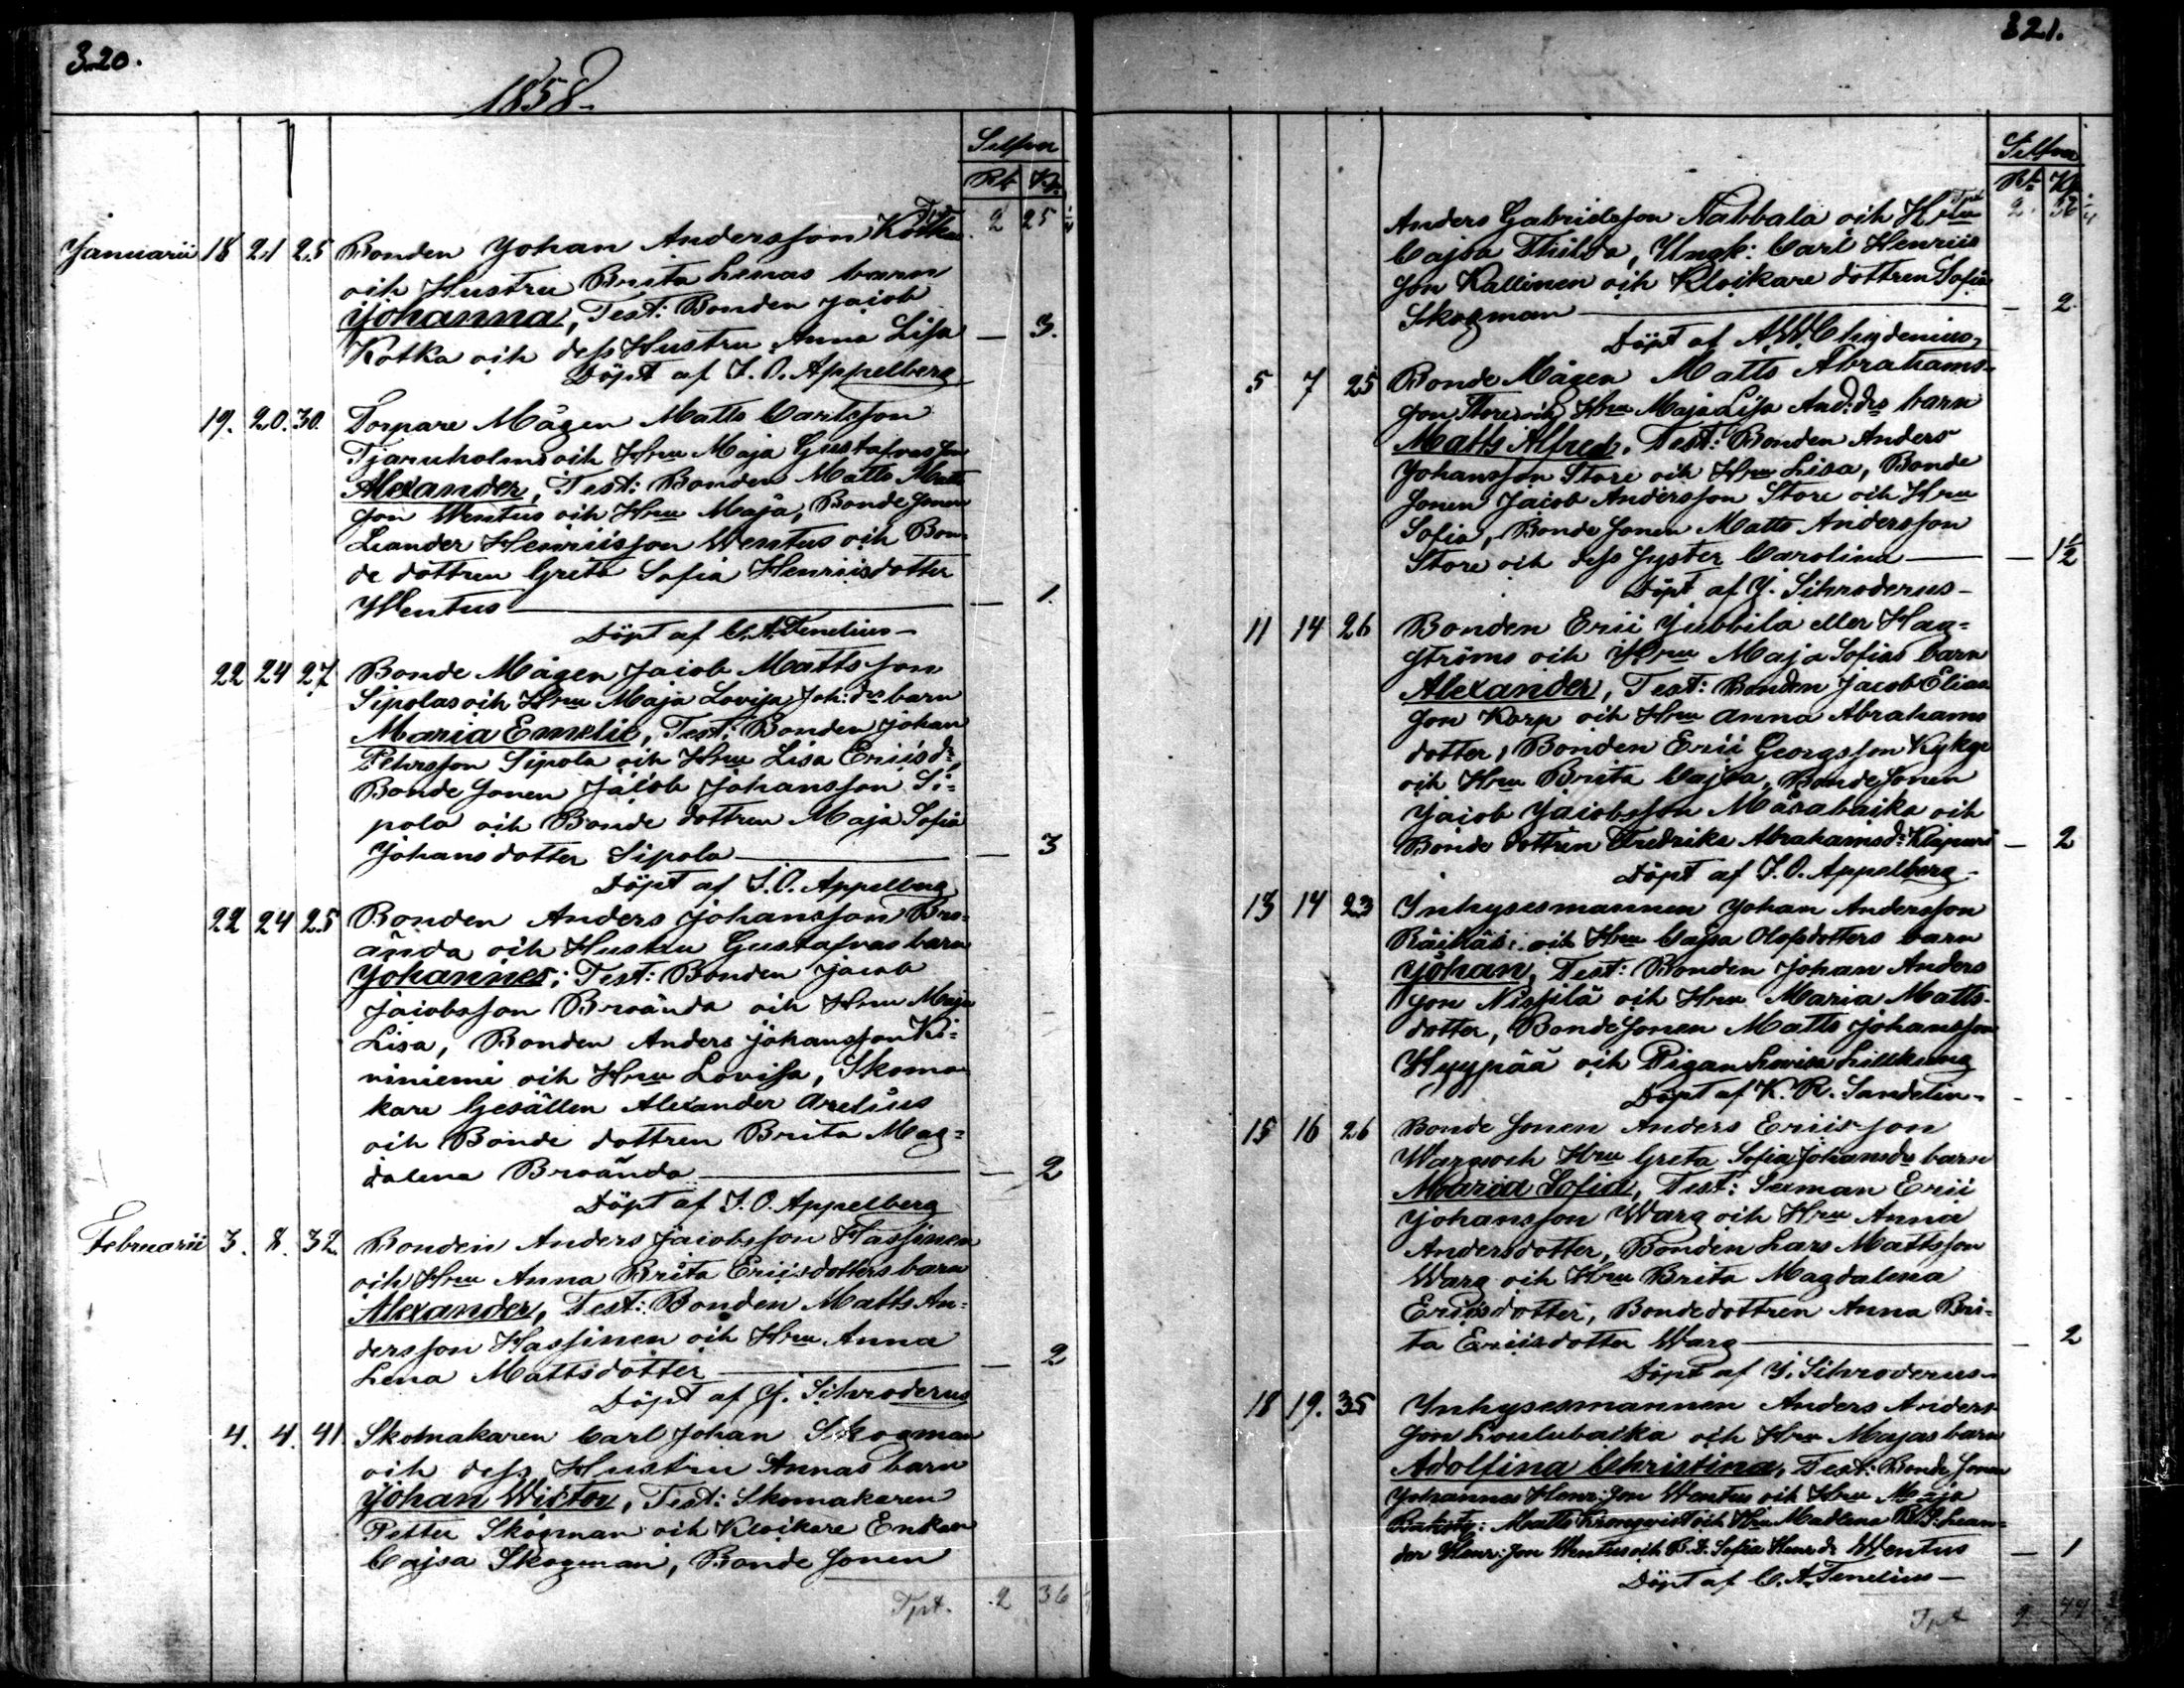 320.
1858.
Silfver
Rb Kp.
Tpt 2 25 1/4
Januarii 18 21 25 Bonden Johan Andersson Kotka
och Hustru Brita Lenas barn
Johanna, Test: Bonden Jacob
Kotka och dess Hustru Anna Lisa — 3.
Döpt af J. O. Appelberg
19. 20. 30. Torpare Mågen Matts Carlsson
Tjäruholms och Hru Maja Gustafvas son
Alexander, Test: Bonden Matts Matts
son Wentus och Hru Maja, Bonde sonen
Leander Henricsson Wentus och Bon-
de dottren Greta Sofia Henricsdotter
Wentus — 1.
Döpt af C. A. Fenelius
22 24 27 Bonde Mågen Jacob Mattsson
Sipolas och Hru Maja Lovisa Joh: drs barn
Maria Emelie, Test: Bonden Johan
Pehrsson Sipola och Hru Lisa Ericsdr,
Bonde sonen Jacob Johansson Si-
pola och Bonde dottren Maja Sofia
Johansdotter Sipola — 3
Döpt af J. O. Appelberg
22 24 25 Bonden Anders Johansson Bro-
ända och Hustru Gustafvas barn
Johannes; Test: Bonden Jacob
Jacobsson Broända och Hru Maja
Lisa, Bonden Anders Johansson Ki-
viniemi och Hru Lovisa, Skoma-
kare Gesällen Alexander Arelius
och Bonde dottren Brita Mag-
dalena Broända — 2
Döpt af J. O. Appelberg
Februarii 3. 8. 32. Bonden Anders Jacobsson Hassinen
och Hru Anna Brita Ericsdotters barn
Alexander, Test: Bonden Matts An-
dersson Hassinen och Hru Anna
Lena Mattsdotter — 2
Döpt af J. Schroderus
4. 4. 41 Skomakaren Carl Johan Skogman
och dess Hustru Annas barn
Johan Wictor, Test: Skomakaren
Petter Skogman och Klockare Enkan
Cajsa Skogman, Bonde sonen
Tpt. 2 36 1/4
321.
Silfver
Rb Kp
Tpt 2. 36 1/4
Anders Gabrielsson Nabbala och Hru
Cajsa Thilda, Yngk: Carl Henrics
son Kallinen och Klockare dottren Sofia
Skogman — 2.
Döpt af A. W. Chydenius
5 7 25 Bonde Mågen Matts Abrahams-
son Store och Hru Maja Lisa And: drs barn
Matts Alfred, Test: Bonden Anders
Johansson Store och Hru Lisa, Bonde
sonen Jacob Andersson Store och Hru
Sofia, Bonde sonen Matts Andersson
Store och dess syster Carolina — 1 1/2
Döpt af J. Schroderus
11 14 26 Bonden Eric Jubbila eller Hag-
ströms och Hru Maja Sofias barn
Alexander, Test: Bonden Jacob Elias
son Korp och Hru Anna Abrahams
dotter, Bonden Eric Georgsson Kykyr
och Hru Brita Cajsa, Bonde sonen
Jacob Jacobsson Märabaika och
Bonde dottren Fredrika Abrahamsdr — 2
Döpt af J. O. Appelberg
13 14 23 Inhysesmannen Johan Andersson
Räihäs och Hru Cajsa Olofsdotters barn
Johan, Test: Bonden Johan Anders
son Nissilä och Hru Maria Matts-
dotter, Bonde sonen Matts Johansson
Hyypää och Pigan Lovisa Lillkung
Döpt af K. R. Sandelin
15 16 26 Bonde sonen Anders Ericsson
Wargs och Hru Greta Sofia Johansdrs barn
Maria Sofia, Test: Sexman Eric
Johansson Warg och Hru Anna
Andersdotter, Bonden Lars Mattsson
Warg och Hru Brita Magdalena
Ericsdotter, Bondedottren Anna Bri-
ta Ericsdotter Warg — 2
Döpt af J. Schroderus
18 19. 35 Inhysesmannen Anders Anders
son Loulubaika och Hru Majas barn
Adolfina Christina, Test: Bonde sonen
Johannes Henr: son Wentus och Hru Maja
Matts Kronqvist och Hru Madlena B.S. Lean-
der Henr: son Wentus och B. d. Sofia Henr. dr Wentus — 1
Döpt af C. A. Fenelius
Tpt 2 44 3/4